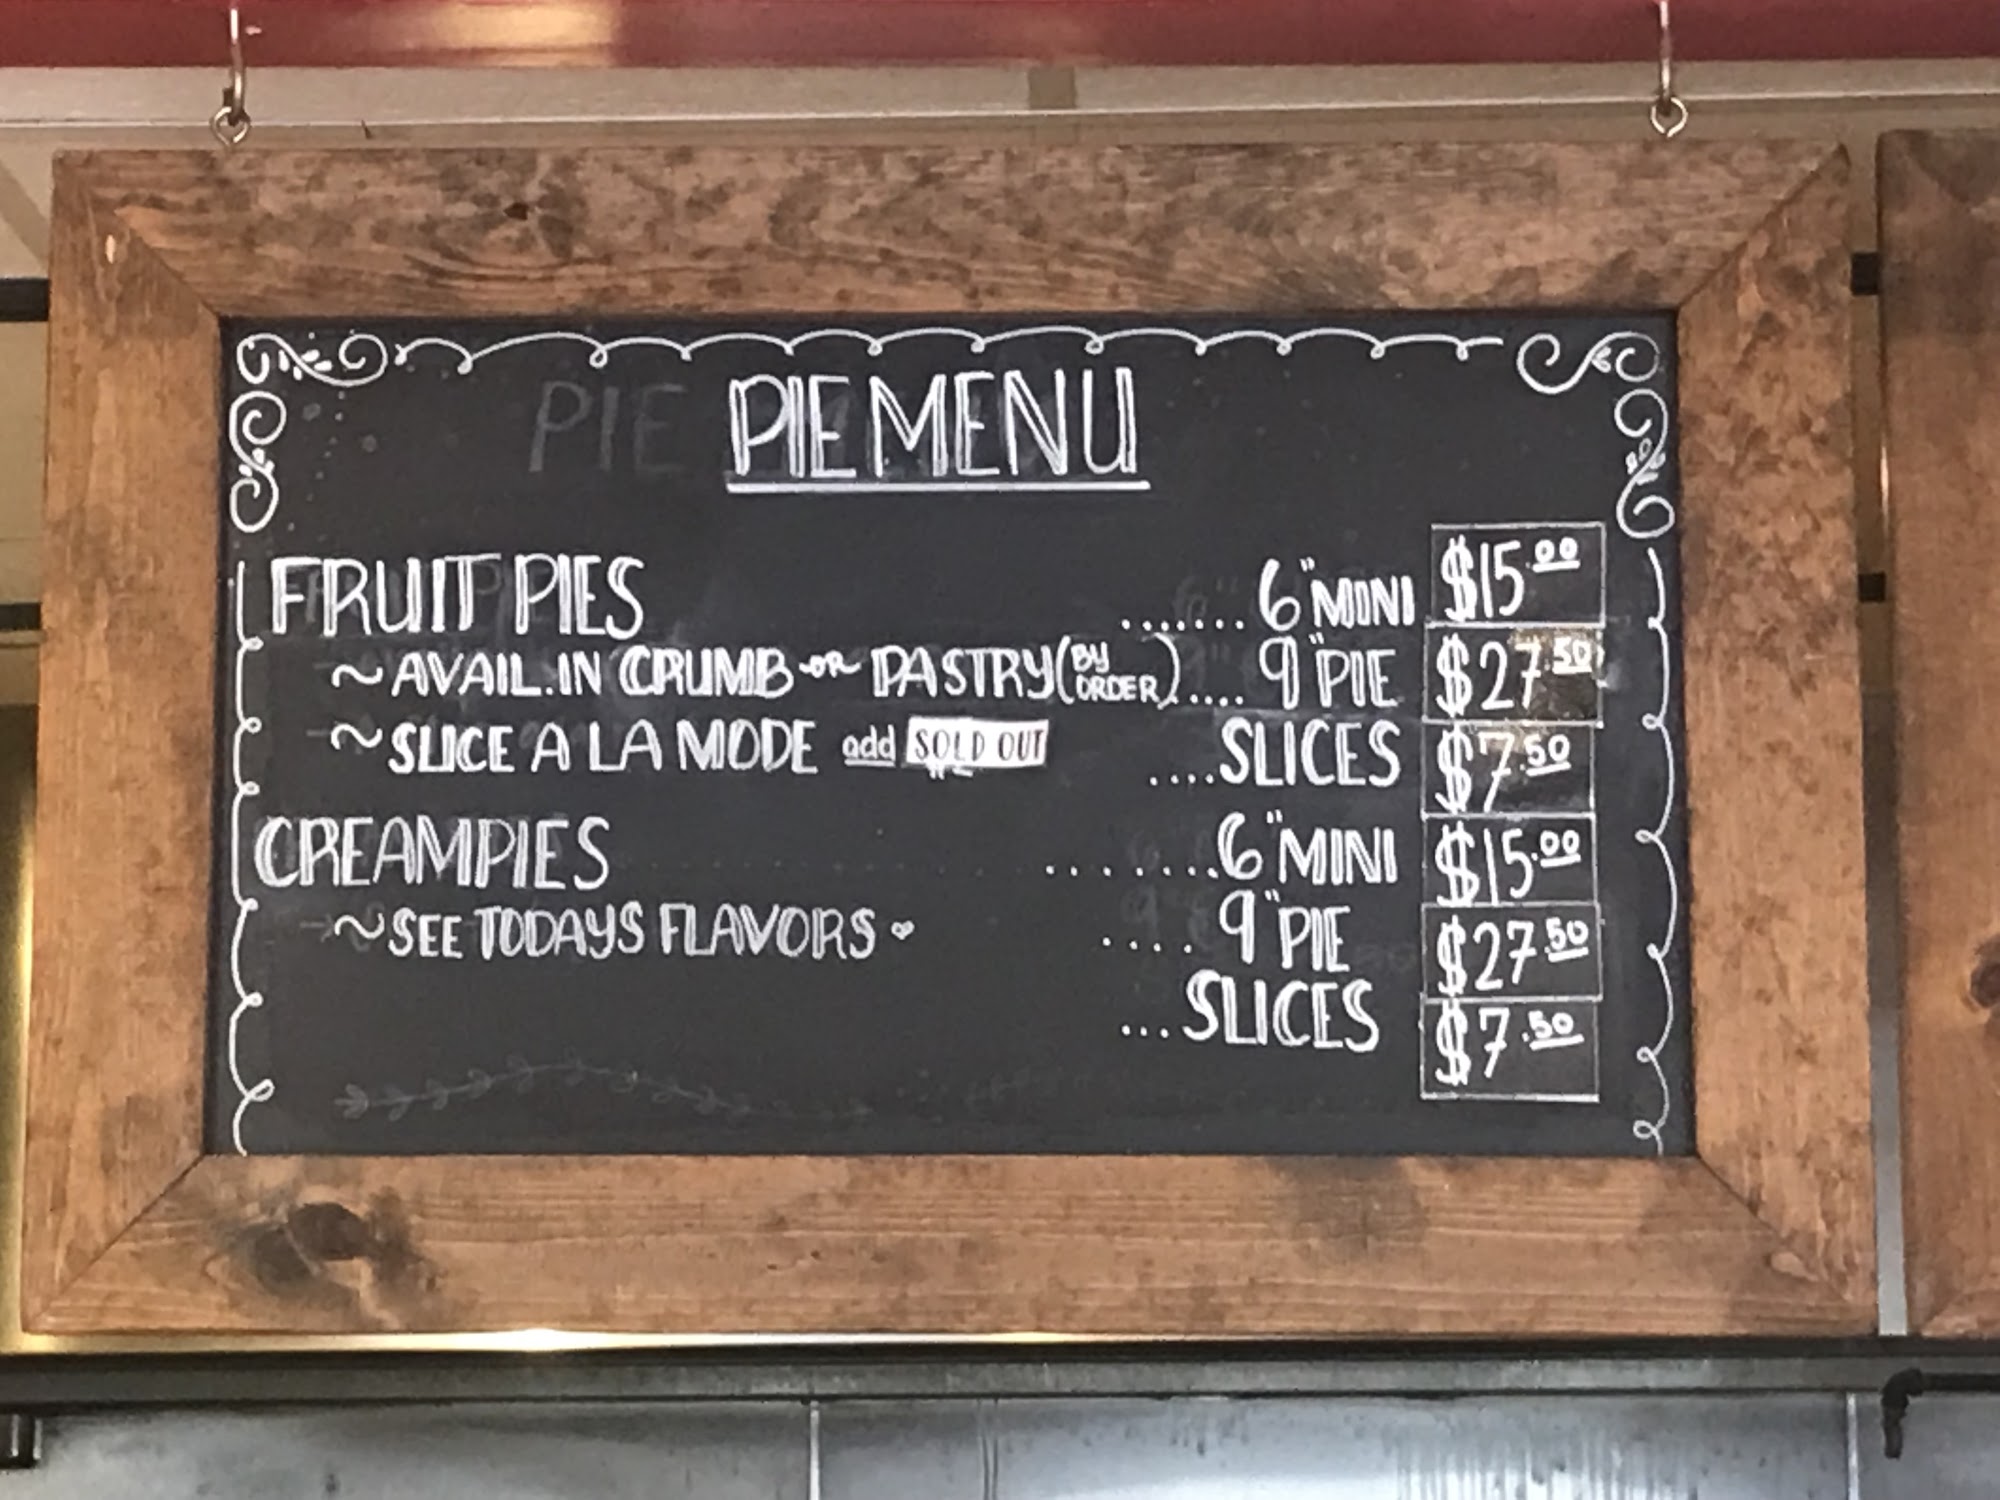 PIE MENU
FRUIT PIES ....... 6" MINI $15.00
~AVAIL. IN CRUMB OR PASTRY (BY ORDER) .... 9" PIE $27.50
~SLICE A LA MODE add SOLD OUT .... SLICES $7.50
CREAM PIES ........ 6" MINI $15.00
~SEE TODAYS FLAVORS .... 9" PIE $27.50
... SLICES $7.50